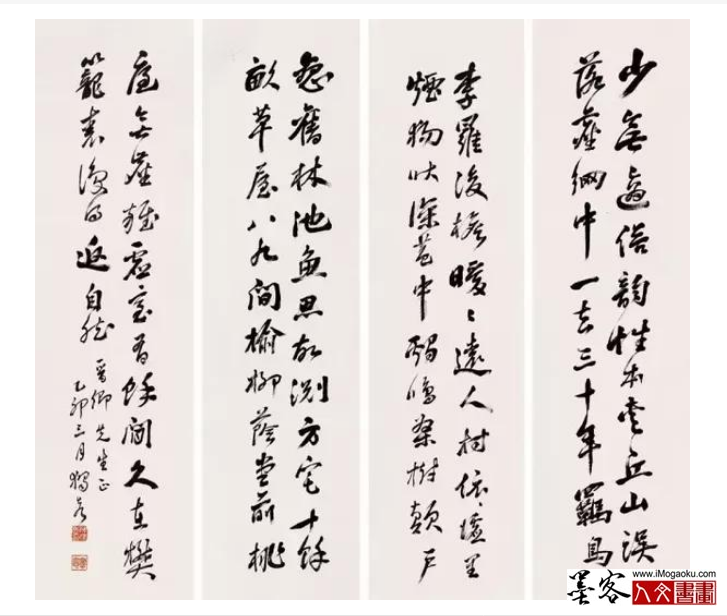 少無適俗韻性本愛丘山誤
落塵網中一去三十年羈鳥
李羅後檐曖〻遠人村依〻墟里
煙狗吠深巷中鷄鳴桑樹顛戶
戀舊林池魚思故淵方宅十餘
畝草屋八九間榆柳蔭堂前桃
庭無塵雜虛室有餘閒久在樊
籠裏復得返自然
晉卿先生正
乙卯三月
墨客
www.iMogaoku.com
人文書畫